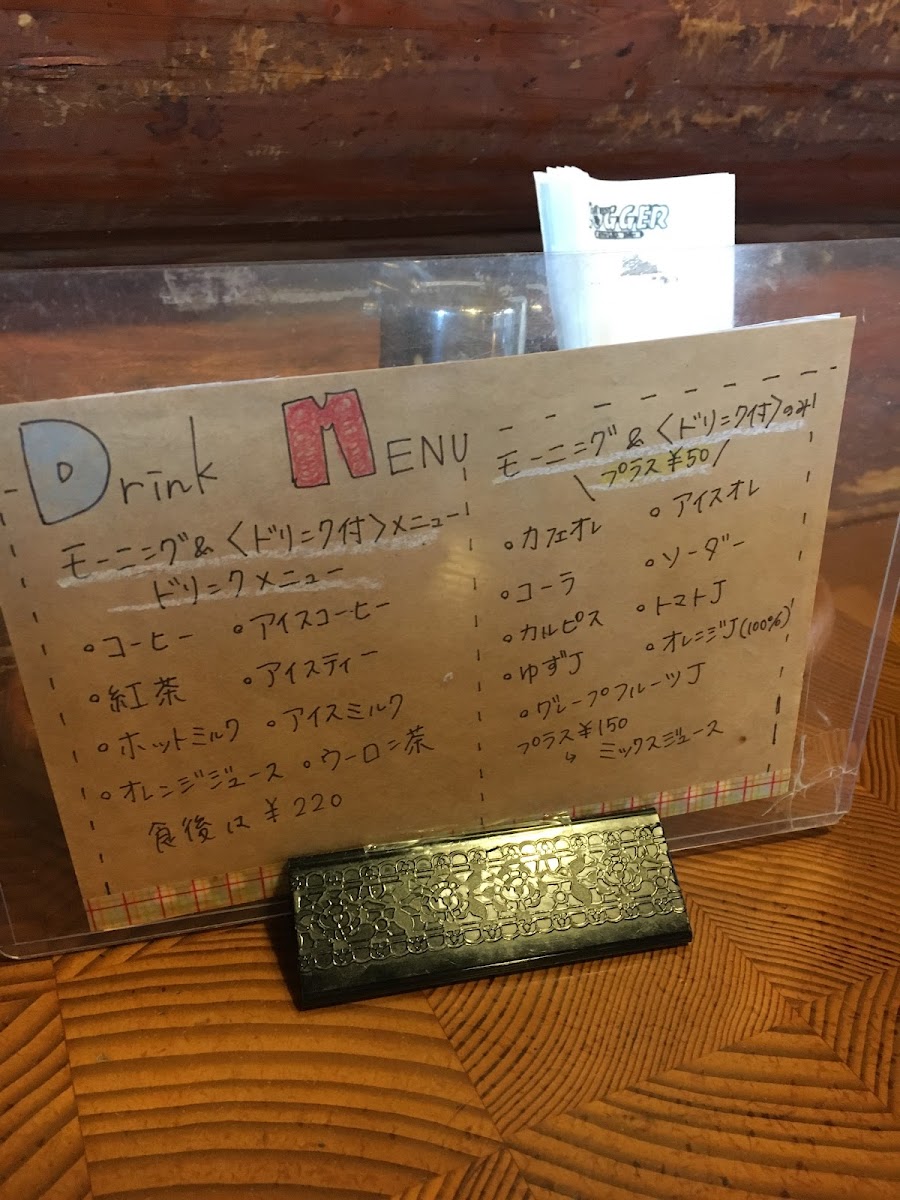 Drink MENU
モーニング&〈ドリンク付〉メニュー
ドリンクメニュー
・コーヒー ・アイスコーヒー
・紅茶 ・アイスティー
・ホットミルク ・アイスミルク
・オレンジジュース ・ウーロン茶
食後は ¥220
モーニング&〈ドリンク付〉のみ!
\ プラス ¥50 /
・カフェオレ ・アイスオレ
・コーラ ・ソーダー
・カルピス ・トマトJ
・ゆずJ ・オレンジJ(100%)
・グレープフルーツJ
プラス ¥150
↳ ミックスジュース
GGER